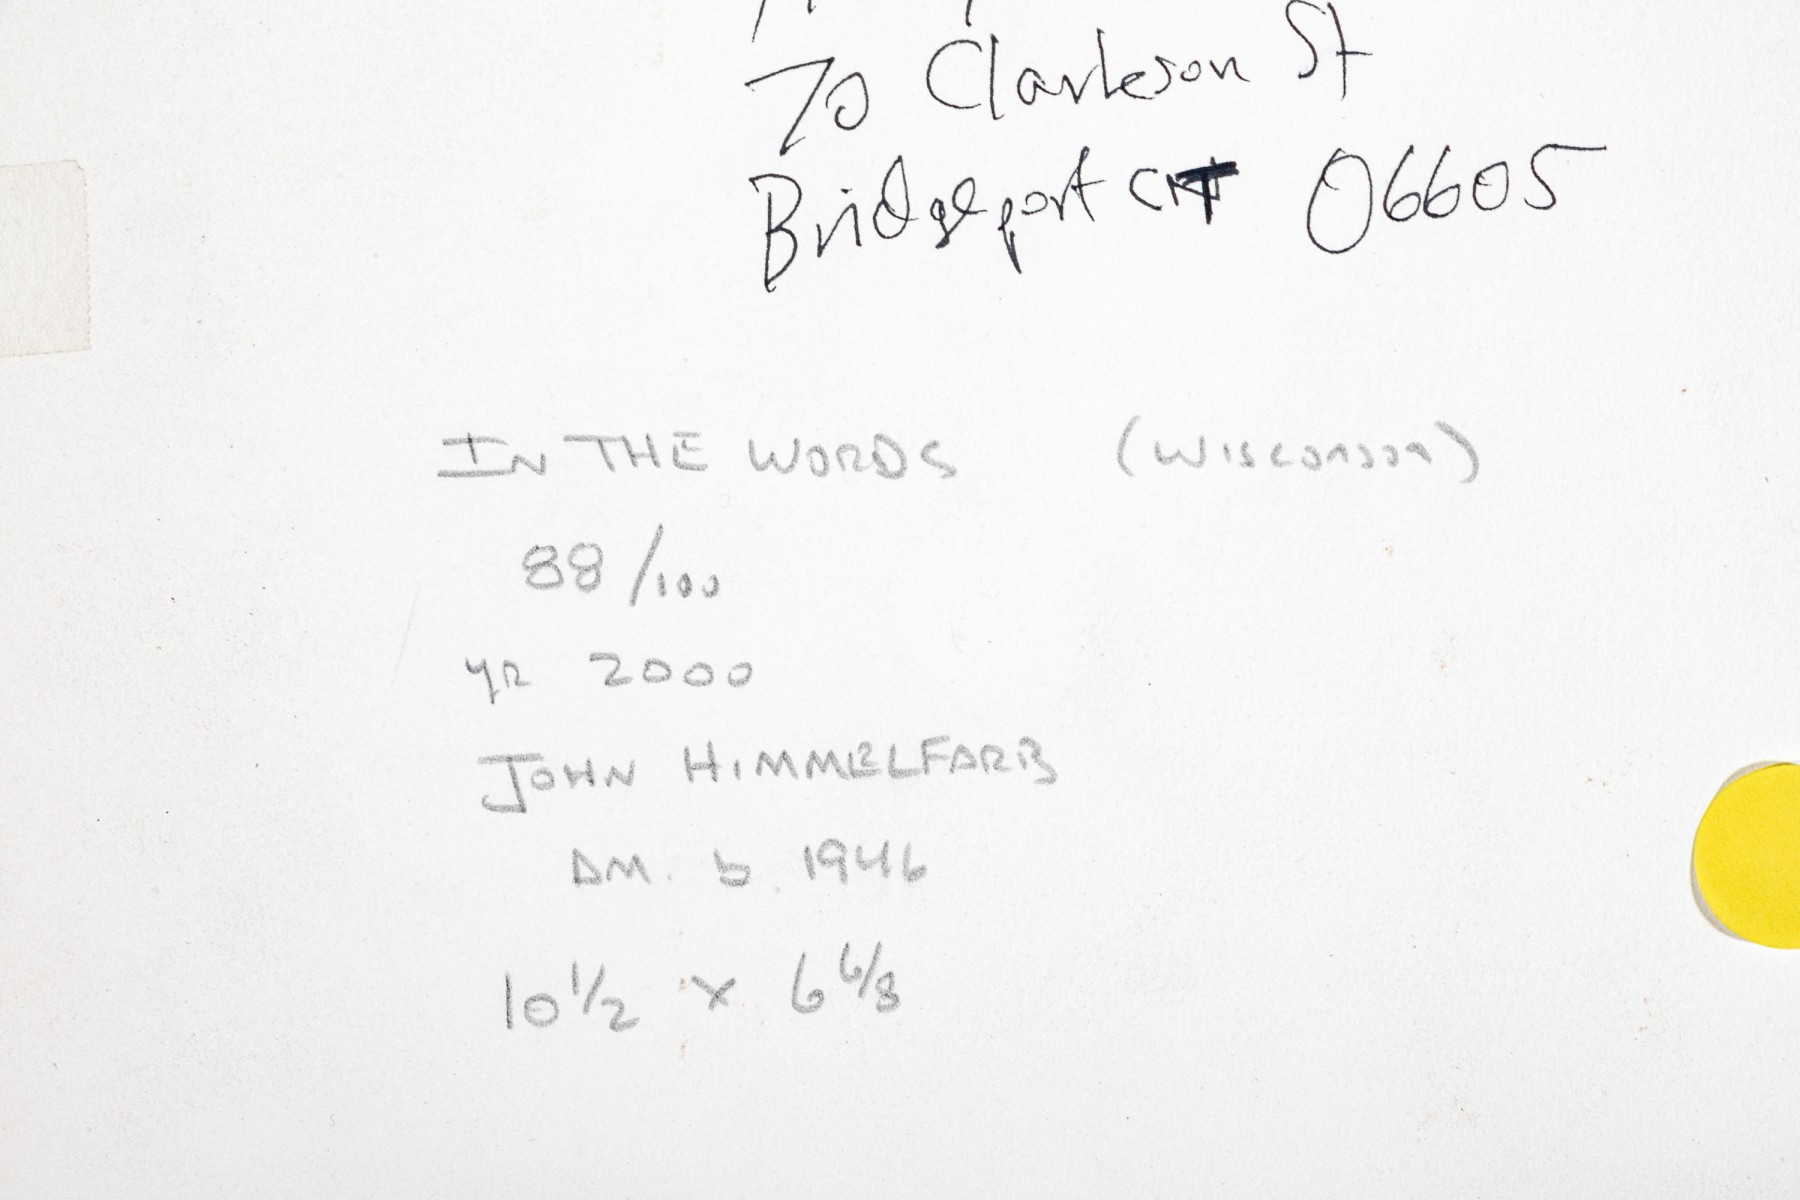 70 Clarkson St
Bridgeport CT 06605
IN THE WORDS (WISCONSON)
88/100
YR 2000
JOHN HIMMELFARB
AM. b. 1946
10 1/2 x 6 6/8